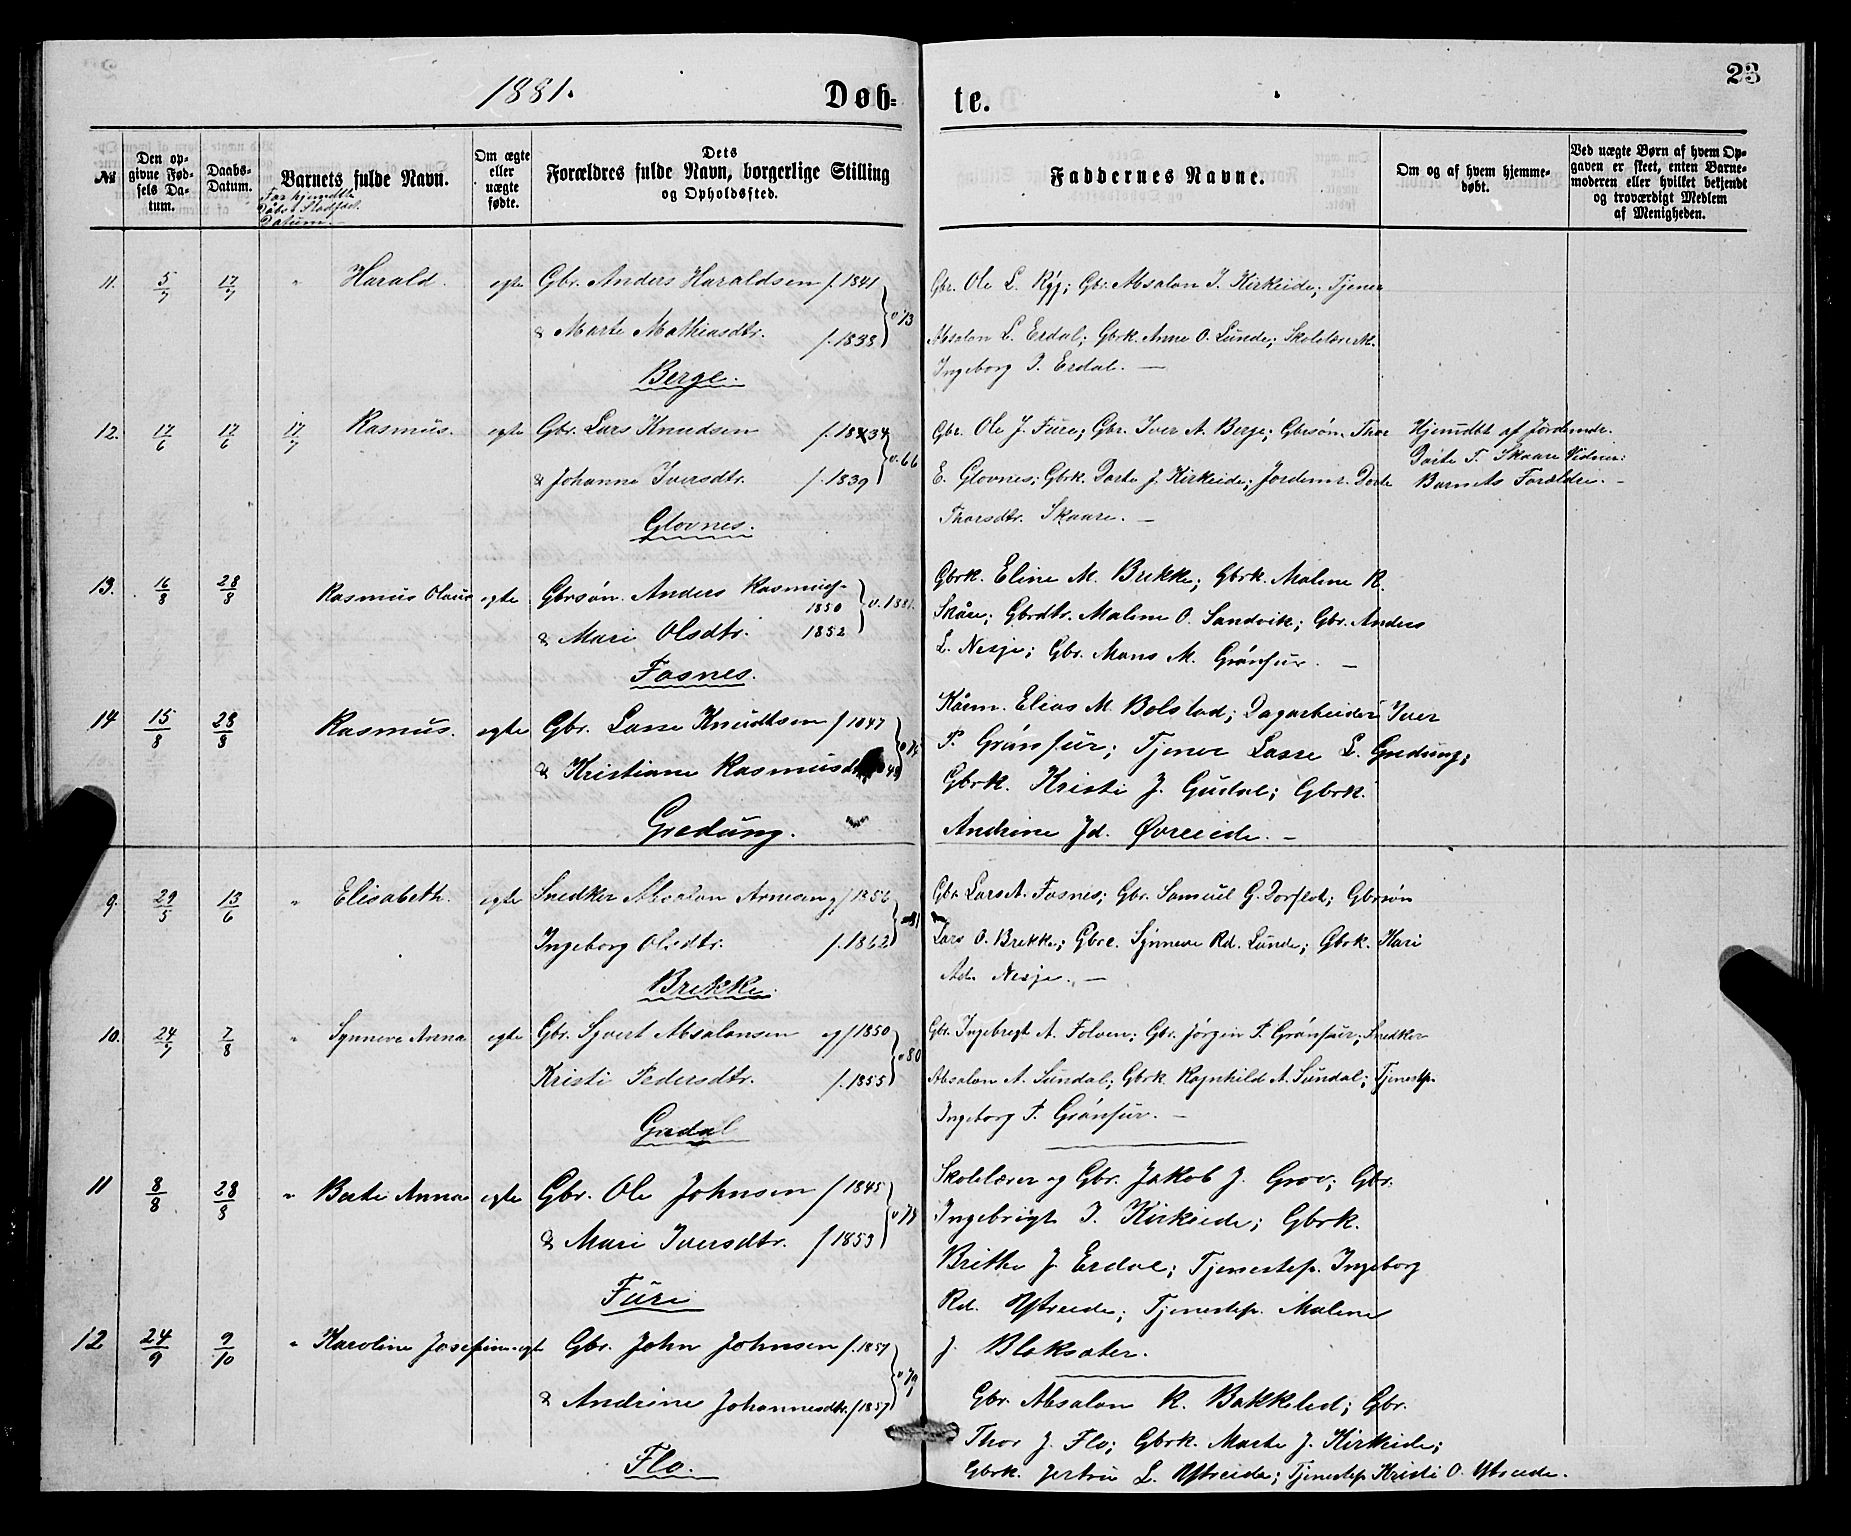 1881. Døb-
No
Den op-
givne Fød-
sels Da-
tum.
Daabs-
Datum.
Barnets fulde Navn.
For hjemdbt.
Døbts Stadfæst.
Datum.
Om ægte
eller
uægte
fødte.
Dets
Forældres fulde Navn, borgerlige Stilling
og Opholdssted.
11. 5/7 17/7 " Harald. egte Gbr. Anders Haraldsen f. 1841
& Marte Mathiasdtr. f. 1838 v. 73
Berge.
12. 17/6 17/6 17/7 Rasmus. egte Gbr. Lars Knudsen f. 1834
& Johanne Iversdtr. f. 1839 v. 66
Glovnes.
13. 16/8 28/8 Rasmus Olaus egte Gbrsøn. Anders Rasmuss-
1850 v. 1881.
& Mari Olsdtr. 1852
Fosnes.
14 15/8 28/8 Rasmus. egte Gbr. Lasse Knudtsen f 1847
& Kristiane Rasmusdtr
Gredung.
9. 29/5 13/6 " Elisabeth. egte Snedker Absalon Arnesen og f 1856
Ingeborg Olsdtr. f. 1862 v 81
Brekke.
10. 24/7 7/8 " Synneve Anna egte Gbr. Syvert Absalonsen og f 1850
Kristi Pedersdtr. f. 1855 v 80
Gudal
11 8/8 28/8 " Berte Anna egte Gbr. Ole Johnsen f 1845
& Mari Iversdtr. f 1853 v. 78
Fure
12 24/9 9/10 " Karoline Josefine egt Gbr. John Johnsen f. 1857
& Andrine Johannesdtr. f 1857 v 79
Flo.
te.
23
Faddernes Navne.
Om og af hvem hjemme-
døbt.
Ved uægte Børn af hvem Op-
gaven er skeet, enten Barne-
moderen eller hvilket bekjendt
og troværdigt Medlem
af Menigheden.
Gbr. Ole L. Rygg; Gbr. Absalon I. Kirkeide; Tjener
Absalon L. Erdal; Gbrk. Anne O. Lunde; Skolelærer M.
Ingeborg I. Erdal. —
Gbr. Ole J. Fure; Gbr. Iver A. Berge; Gbrsøn. Thor
E. Glovnes; Gbrk. Dorte J. Kirkeide; Jordemr. Dorte
Thorsdtr. Skaare. —
Hjemdbt af Jordemdr.
Dorte T. Skaare Vidner:
Barnets Forældre. —
Gbrk. Eline M. Brekke; Gbrk. Malene R.
Skåre; Gbrdtr. Malene O. Sandvik; Gbr. Anders
L. Nesje; Gbr. Mons M. Grønfur. —
Kårm. Elias M. Bolstad; Dagarbeider Iver
P. Grønfur; Tjener Lasse L. Gredung;
Gbrk. Kristi J. Gudal; Gbrk.
Andrine Jd. Øvreeide. —
Gbr. Lars A. Fosnes; Gbr. Samuel G. Dorflot; Gbrsøn
Lars O. Brekke; Gbre. Synneve Rd. Lunde; Gbrk. Kari
Ad. Nesje. —
Gbr. Ingebrigt A. Folven; Gbr. Jørgen P. Grønfur; Snedker
Absalon A. Sundal; Gbrk. Ragnhild A. Sundal; Tjenestp.
Ingeborg P. Grønfur. —
Skolelærer og Gbr. Jakob J. Grov; Gbr.
Ingebrigt I. Kirkeide; Gbrk.
Brithe J. Erdal; Tjenestep. Ingeborg
Rd. Ytreeide; Tjenestep. Malene
J. Blaksæter.
Gbr. Absalon R. Bakkelid; Gbr.
Thor J. Flo; Gbrk. Marte J. Kirkeide;
Gbrk. Jertrue L. Ytreeide; Tjenestep. Kristi O. Ytreeide.